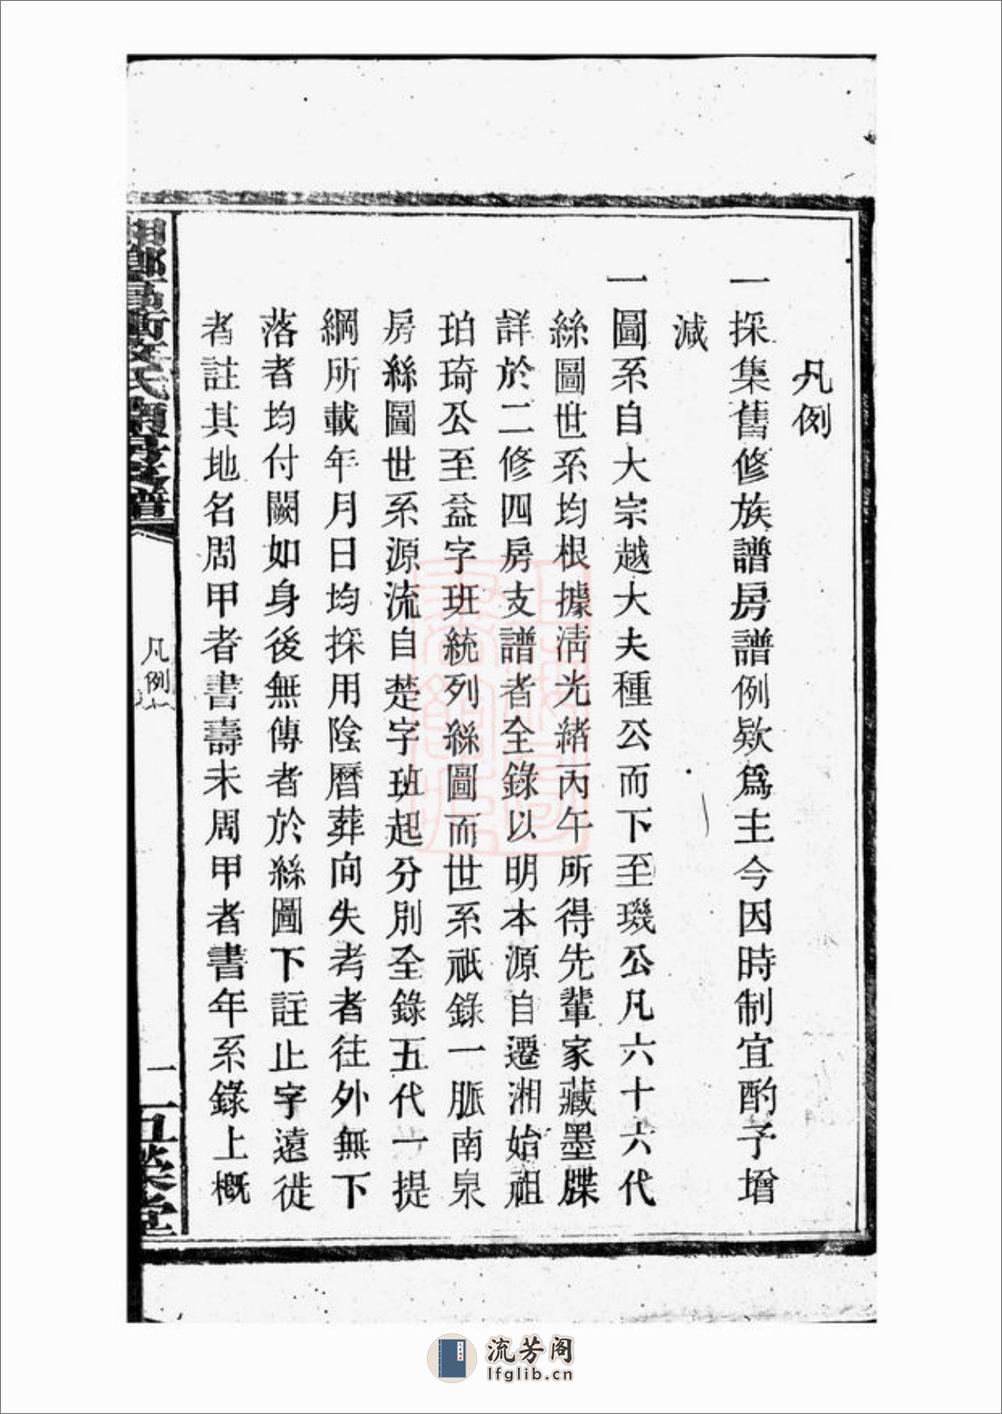 凡例
一採集舊修族譜房譜例欵爲主今因時制宜酌予增
減
一圖系自大宗越大夫種公而下至璣公凡六十六代
絲圖世系均根據淸光緒丙午所得先輩家藏墨牒
詳於二修四房支譜者全錄以明本源自遷湘始祖
珀琦公至益字班統列絲圖而世系祇錄一脈南泉
房絲圖世系源流自楚字班起分別全錄五代一提
綱所載年月日均採用陰曆葬向失考者往外無下
落者均付闕如身後無傳者於絲圖下註止字遠徙
者註其地名周甲者書壽未周甲者書年系錄上概
凡例
一
流芳阁
lfglib.cn